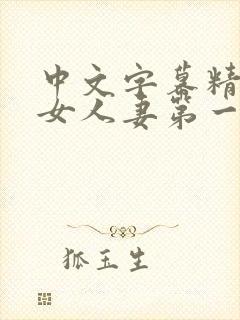 中文字幕精
女人妻第一
狐玉生